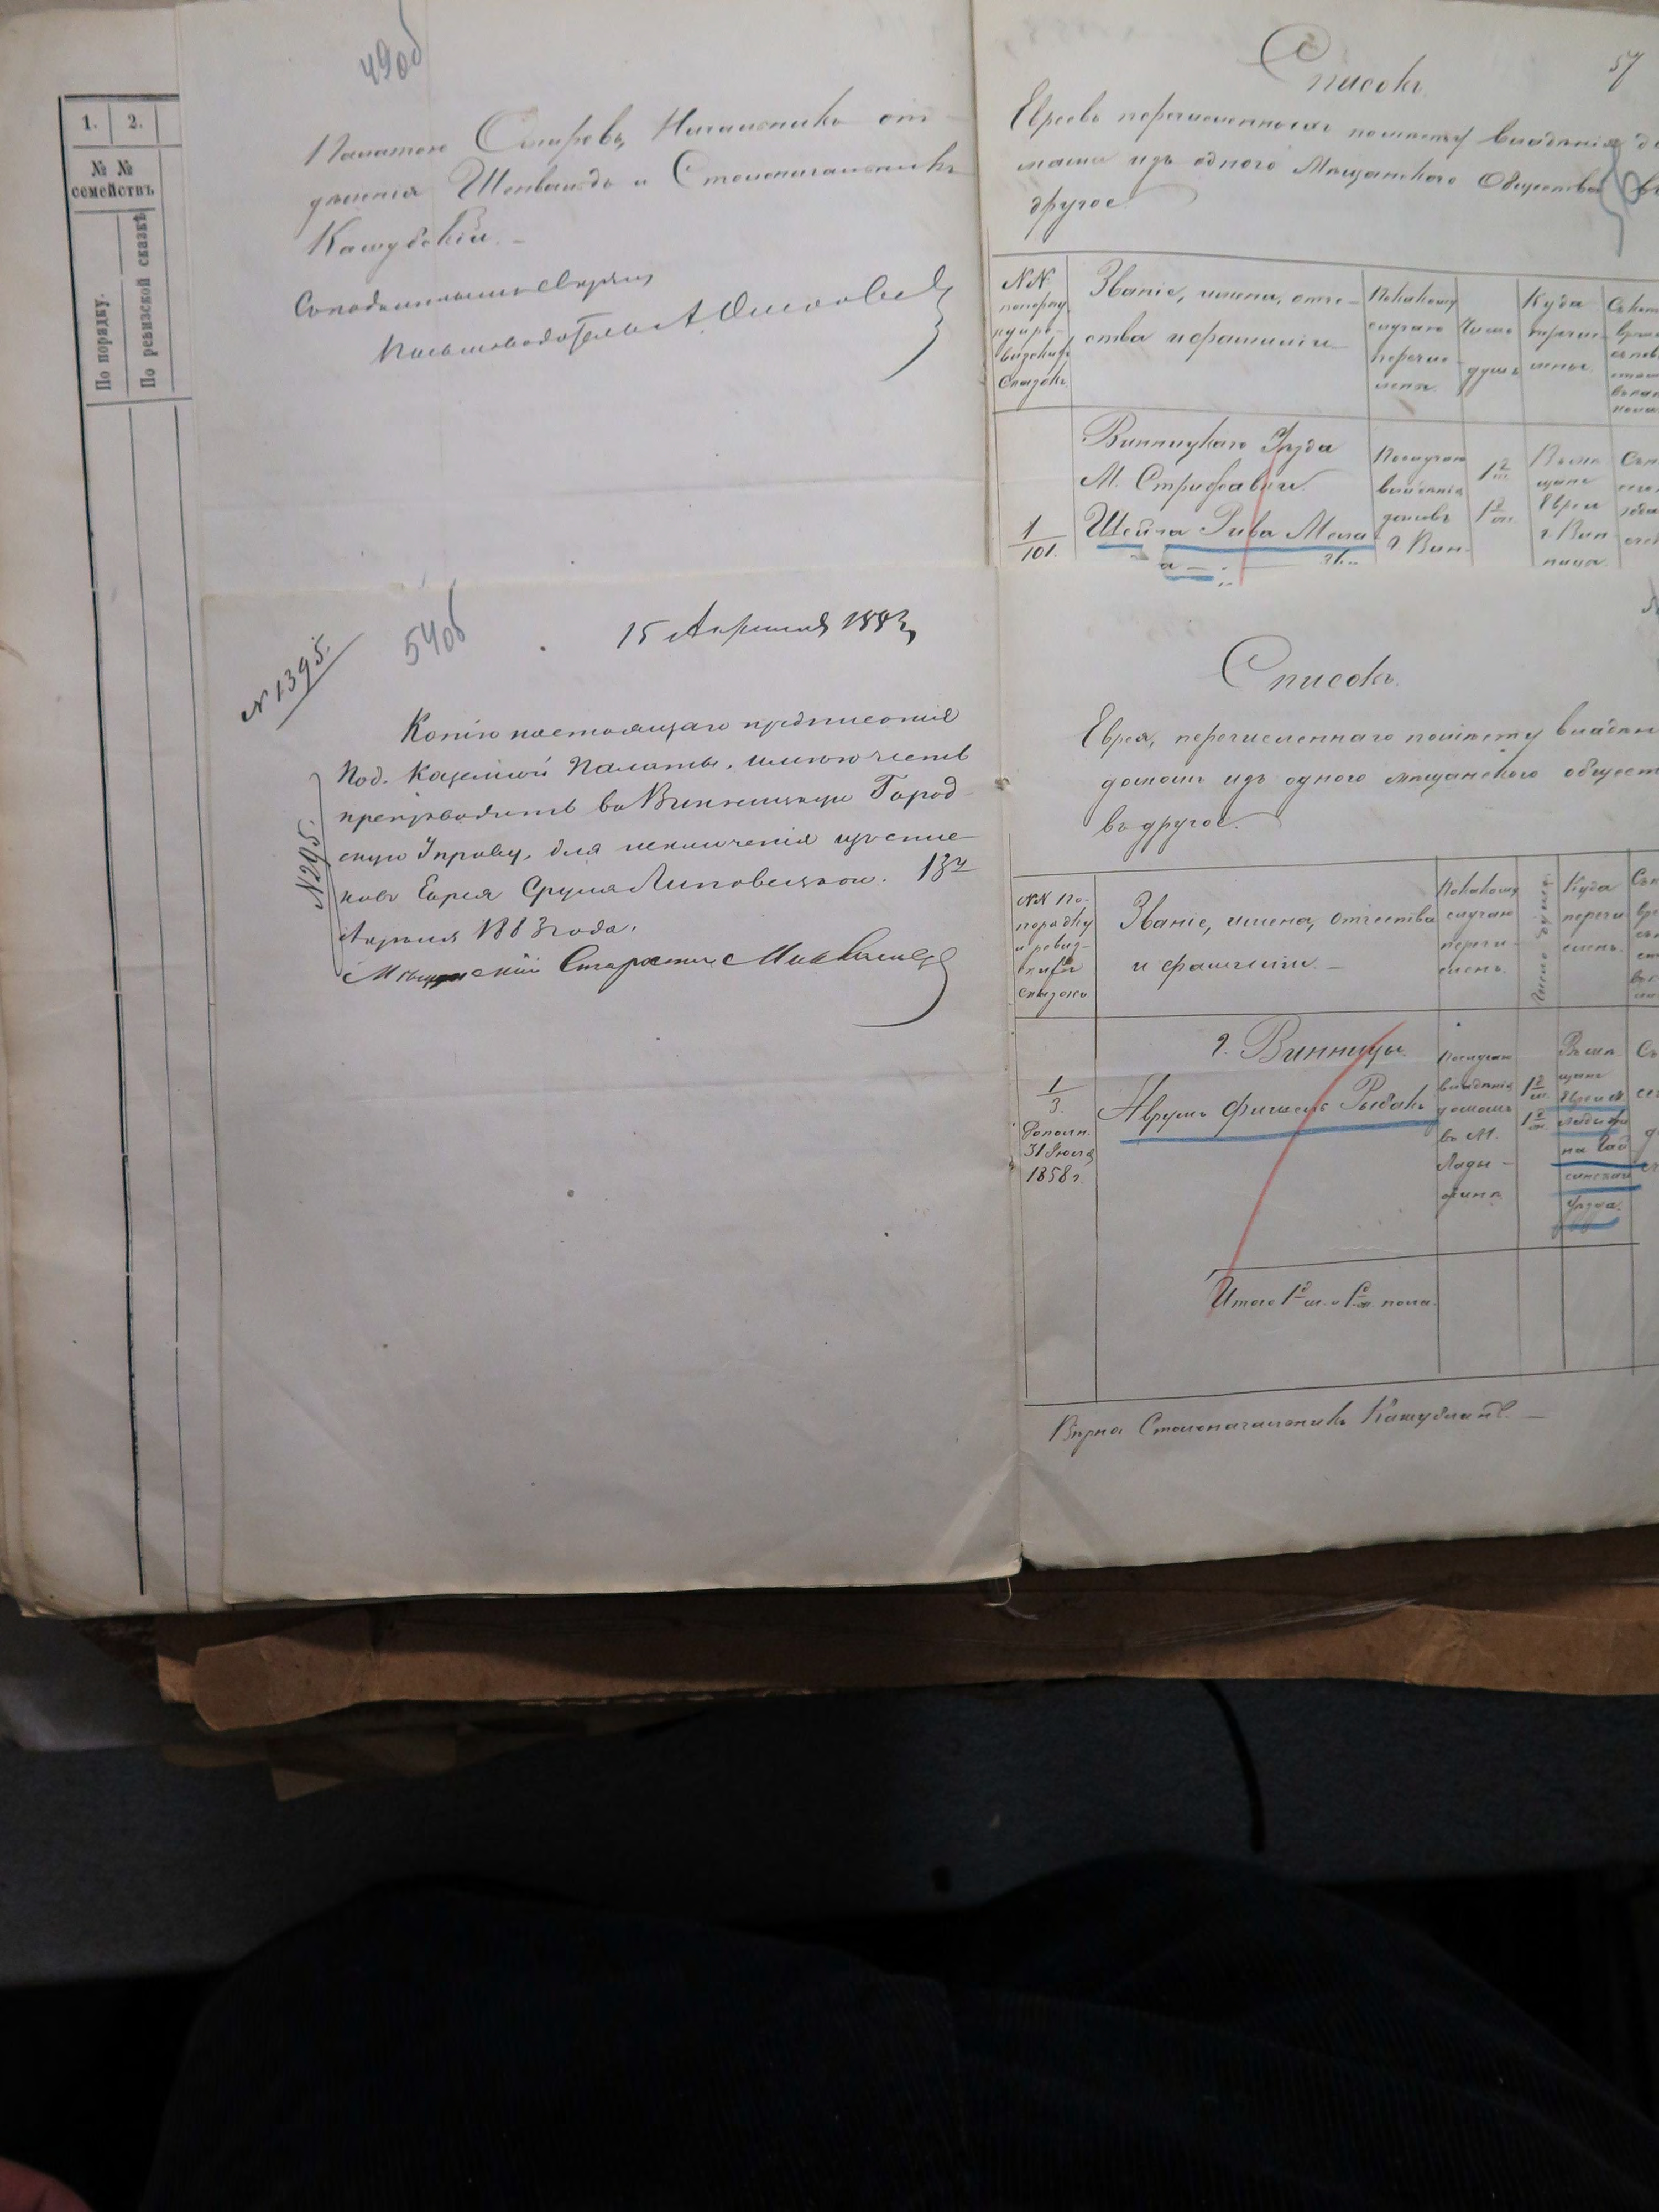 1. 2.
№ № семействъ
По порядку.
По ревизской сказкѣ
49об
Палатою Столяровъ, Начальникъ от-
дѣленія и Столоначальникъ
Кашубскій. -
Съ подлиннымъ вѣрно
Письмоводитель А.
57
Списокъ
Евреевъ перечисленныхъ по случаю владѣнія до
мами изъ одного Мѣщанскаго Общества въ
другое.
№№
по порядку
и по ре-
визскимъ
сказкамъ
Званіе, имена, отче-
ства и фамиліи
По какому
случаю
перечис-
лены.
Число
душъ
Куда
перечис-
лены.
Винницкаго Уѣзда
М. Стрижавки.
1/101.
Шейна Рива Мела
По случаю
владѣнія
домовъ
г. Вин-
1 м.
1 ж.
Въ мѣ
щане
Евреи
г. Вин
ница.
54об
15 Апрѣля 1883
№ 1395.
№ 295.
Копію настоящаго предписанія
Под. Казенной Палаты, имѣю честь
препроводить въ Винницкую Город-
скую Управу, для исключенія изъ спис-
ковъ Еврея Сруля Липовецкаго. 13го
Апрѣля 1883 года.
Мѣщанскій Староста
Списокъ.
Еврея, перечисленнаго по случаю владѣнія
домомъ изъ одного мѣщанскаго общест
въ другое.
№№ по
порядку
и ревиз-
скимъ
сказкамъ
Званіе, имена, отчества
и фамиліи. -
По какому
случаю
перечи-
сленъ.
Число душъ.
Куда
перечи
сленъ.
г. Винницы.
1/3.
Дополн.
31 Іюля
1858 г.
Аврумъ Фишель Рыбакъ
По случаю
владѣнія
домомъ
въ М.
Лады-
жинѣ
1 м.
1 ж.
Въ мѣ-
щане
Евреи м.
Ладыжи
на Гай
синскаго
Уѣзда.
Итого 1 м. и 1 ж. пола.
Вѣрно Столоначальникъ Кашубскій. -